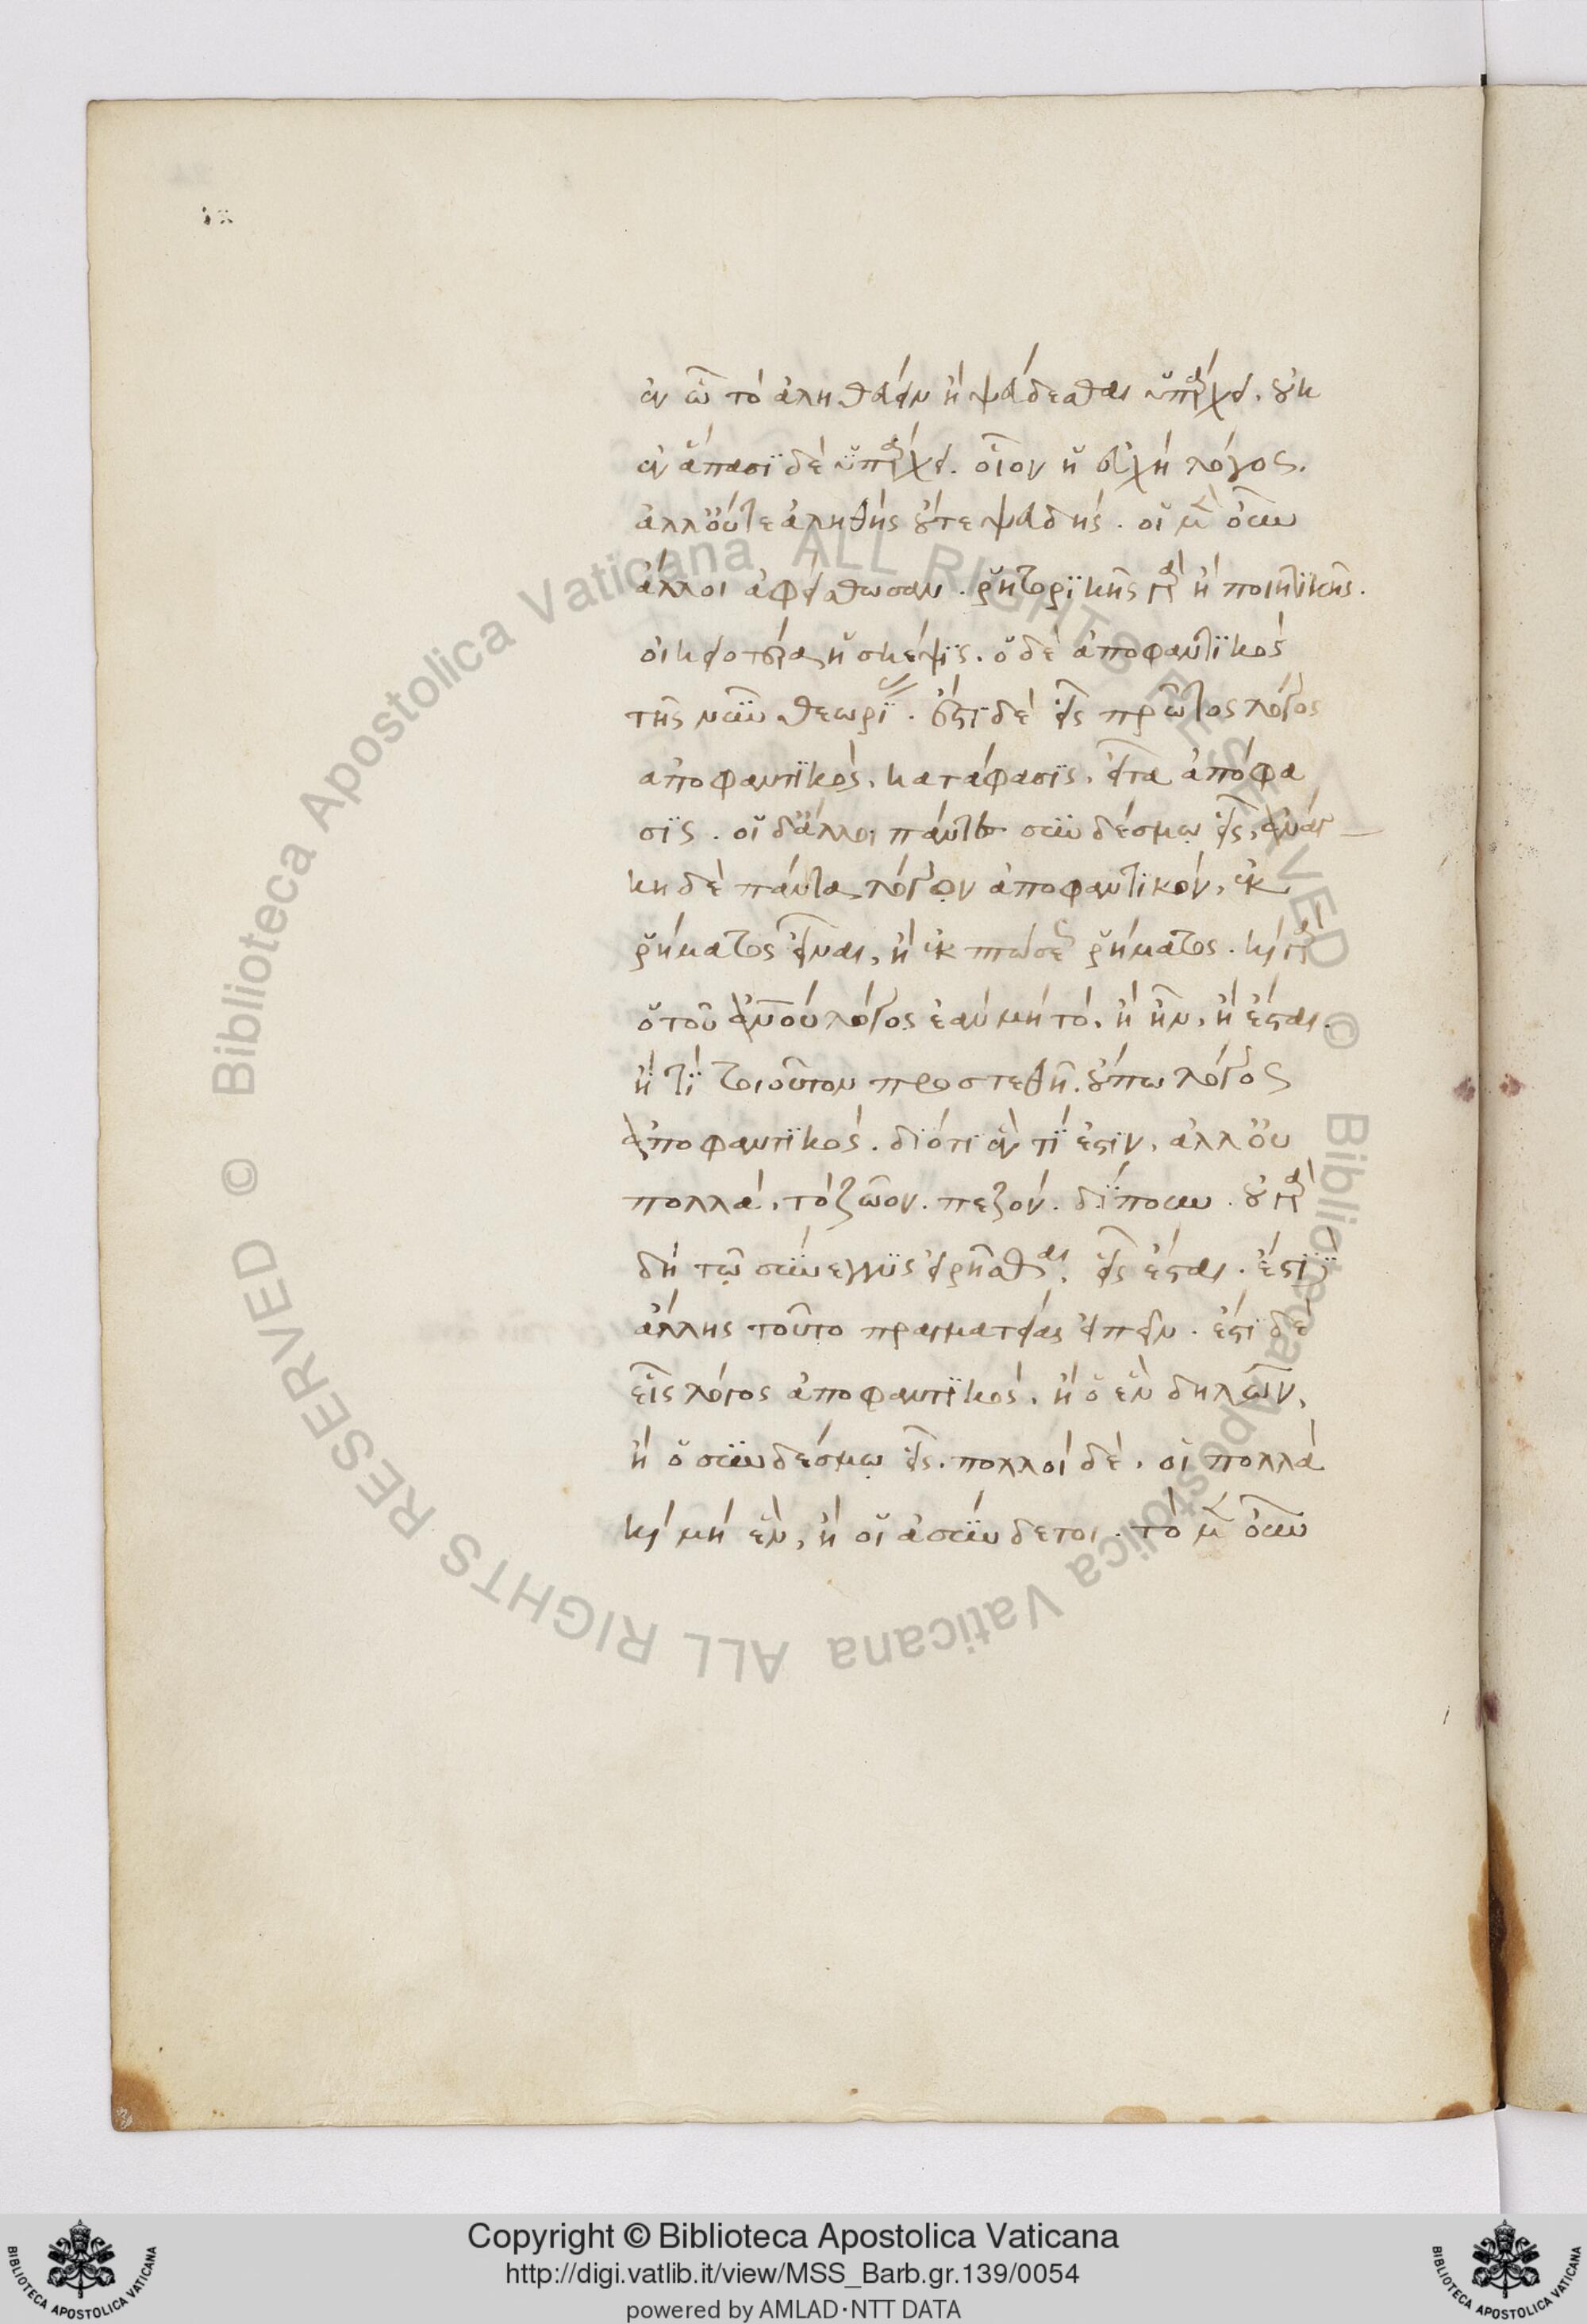 ἐν ᾧ τὸ ἀληθεύειν ἢ ψεύδεσθαι ὑπάρχει. οὐκ
ἐν ἅπασι δὲ ὑπάρχει. οἷον ἡ εὐχὴ λόγος.
ἀλλ' οὔτε ἀληθὴς οὔτε ψευδής. οἱ μὲν οὖν
ἄλλοι ἀφείσθωσαν. ῥητορικῆς γὰρ ἢ ποιητικῆς.
οἰκειοτέρα ἡ σκέψις. ὁ δὲ ἀποφαντικὸς
τῆς νῦν θεωρίας. ἔστι δὲ εἷς πρῶτος λόγος
ἀποφαντικὸς, κατάφασις, εἶτα ἀπόφα
σις. οἱ δ' ἄλλοι πάντες συνδέσμῳ εἷς, ἀνάγ
κη δὲ πάντα λόγον ἀποφαντικὸν, ἐκ
ῥήματος εἶναι, ἢ ἐκ πτώσεως ῥήματος. καὶ γὰρ
ὁ τοῦ ἀνου λόγος ἐὰν μὴ τὸ, ἢ ἦν, ἢ ἔσται.
ἤ τι τοιοῦτον προστεθῇ. οὔπω λόγος
ἀποφαντικός. διότι ἕν τί ἐστιν, ἀλλ' οὐ
πολλὰ, τὸ ζῶον. πεζὸν. δίπουν. οὐ γὰρ
δὴ τῷ σύνεγγυς εἰρῆσθαι, εἷς ἔσται. ἔστι δὲ
ἄλλης τοῦτο πραγματείας εἰπεῖν. ἔστι δὲ
εἷς λόγος ἀποφαντικὸς, ἢ ὁ ἓν δηλῶν,
ἢ ὁ συνδέσμῳ εἷς. πολλοὶ δὲ, οἱ πολλὰ
καὶ μὴ ἓν, ἢ οἱ ἀσύνδετοι. τὸ μὲν οὖν
© Biblioteca Apostolica Vaticana ALL RIGHTS RESERVED © Biblioteca Apostolica Vaticana ALL RIGHTS RESERVED
Copyright © Biblioteca Apostolica Vaticana
http://digi.vatlib.it/view/MSS_Barb.gr.139/0054
powered by AMLAD·NTT DATA
BIBLIOTECA APOSTOLICA VATICANA
BIBLIOTECA APOSTOLICA VATICANA